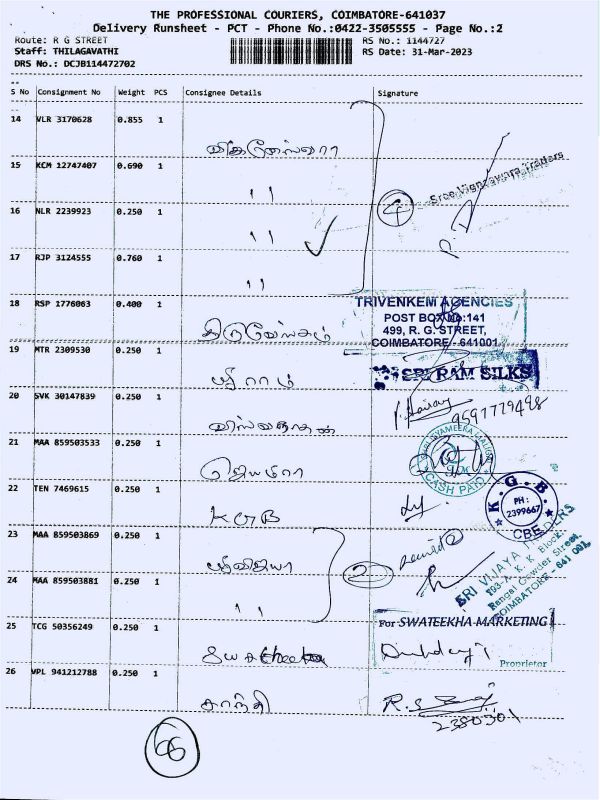 THE PROFESSIONAL COURIERS, COIMBATORE-641037
Delivery Runsheet - PCT - Phone No.:0422-3505555 - Page No.:2
Route: R G STREET RS No.: 1144727
Staff: THILAGAVATHI RS Date: 31-Mar-2023
DRS No.: DCJB114472702
S No Consignment No Weight PCS Consignee Details Signature
14 VLR 3170628 0.855 1
விக்னேஸ்வரா
15 KCM 12747407 0.690 1
Sree Vignezwara Traders
" 4
16 NLR 2239923 0.250 1
"
17 RJP 3124555 0.760 1
"
18 RSP 1776063 0.400 1
TRIVENKEM AGENCIES
POST BOX NO:141
499, R. G. STREET,
COIMBATORE - 641001
19 MTR 2309530 0.250 1
ஸ்ரீராம் SRI RAM SILKS
20 SVK 30147839 0.250 1
விஸ்வநாதன் 9597779498
21 MAA 859503533 0.250 1
ஜெயமீரா CASH PAID
22 TEN 7469615 0.250 1
KGB K.G.B. PH: 2399667 CBE
23 MAA 859503869 0.250 1
ஸ்ரீவிஜயா 2
24 MAA 859503881 0.250 1
" SRI VIJAYA TRADERS
193-A, K. K. Block,
Rangai Gowder Street,
COIMBATORE - 641 001
25 TCG 50356249 0.250 1
For SWATEEKHA MARKETING
Proprietor
26 VPL 941212788 0.250 1
சாந்தி
2380301
66